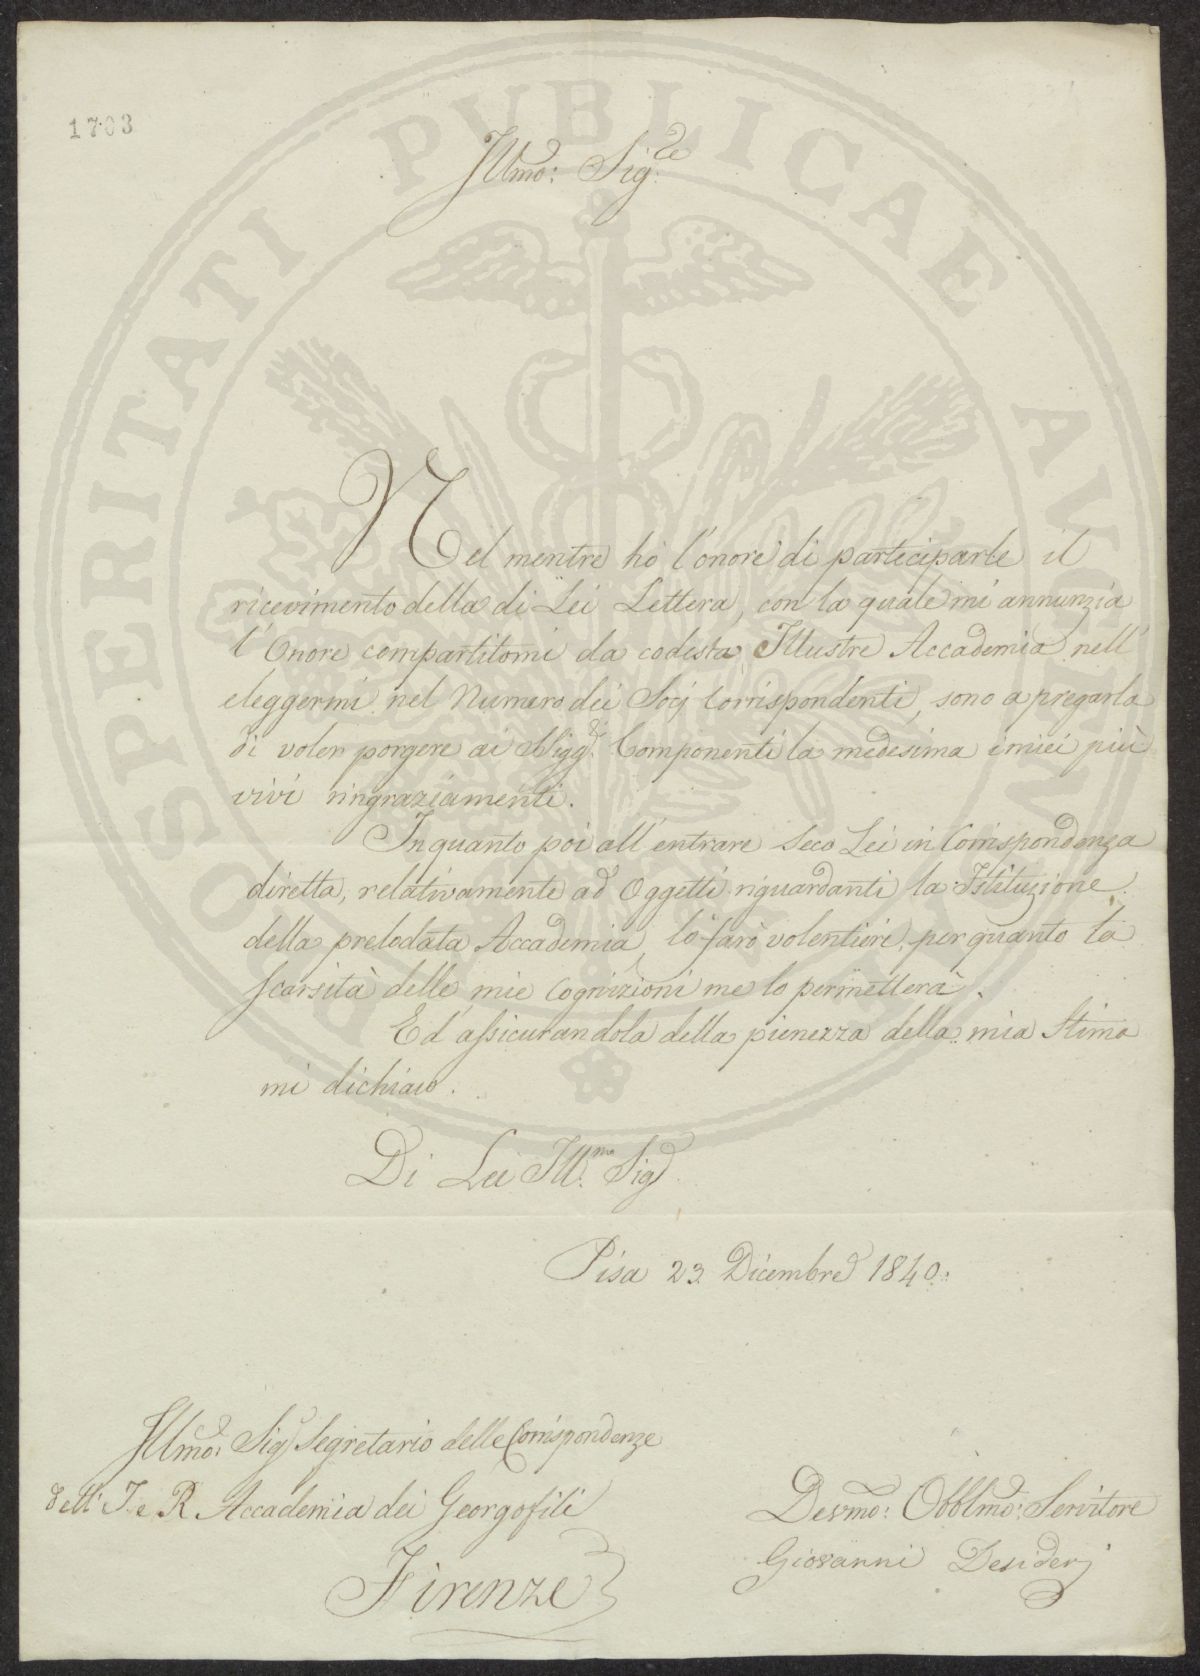 1703
Illmo: Sig.re
Nel mentre hò l'onore di participarle il
ricevimento della di Lei Lettera, con la quale mi annunzia
l'Onore compartitomi da codesta Illustre Accademia nell'
eleggermi nel Numero dei Socj Corrispondenti, sono a pregarla
di voler porgere ai Sigg.ri Componenti la medesima i miei più
vivi ringraziamenti.
In quanto poi all'entrare seco Lei in Corrispondenza
diretta, relativamente ad Oggetti riguardanti la Istituzione
della prelodata Accademia, lo farò volentieri, per quanto la
scarsità delle mie Cognizioni me lo permetterà.
Ed assicurandola della pienezza della mia Stima
mi dichiaro.
Di Lei Ill.mo Sig.
Pisa 23. Dicembre 1840.
Illmo: Sig. Segretario delle Corrispondenze
dell' I. e R. Accademia dei Georgofili
Firenze
Devmo: Obblmo: Servitore
Giovanni Desiderj
PROSPERITATI PVBLICAE AVGENDAE